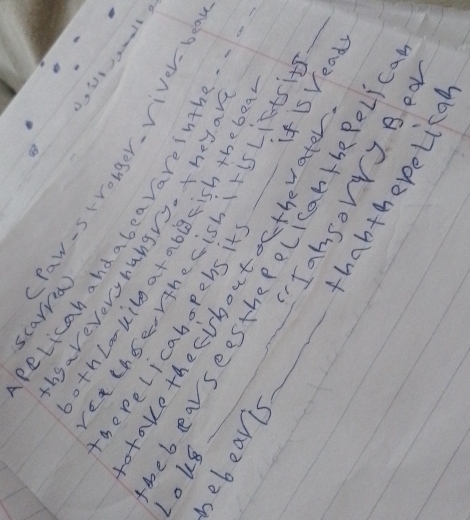 (Paw - stronger - river - beak
scarred)
A pelican and a bear are in the - - - -
they are very hungry. They are
both looking at a big fish the bear
reaches for the fish it is lifts its ——
the pelican opens its —— it is ready
to take the fish out of the water.
the bear sees the pelican the pelican
Looks —— "I am sorry Bear
the bear is —— than the pelican